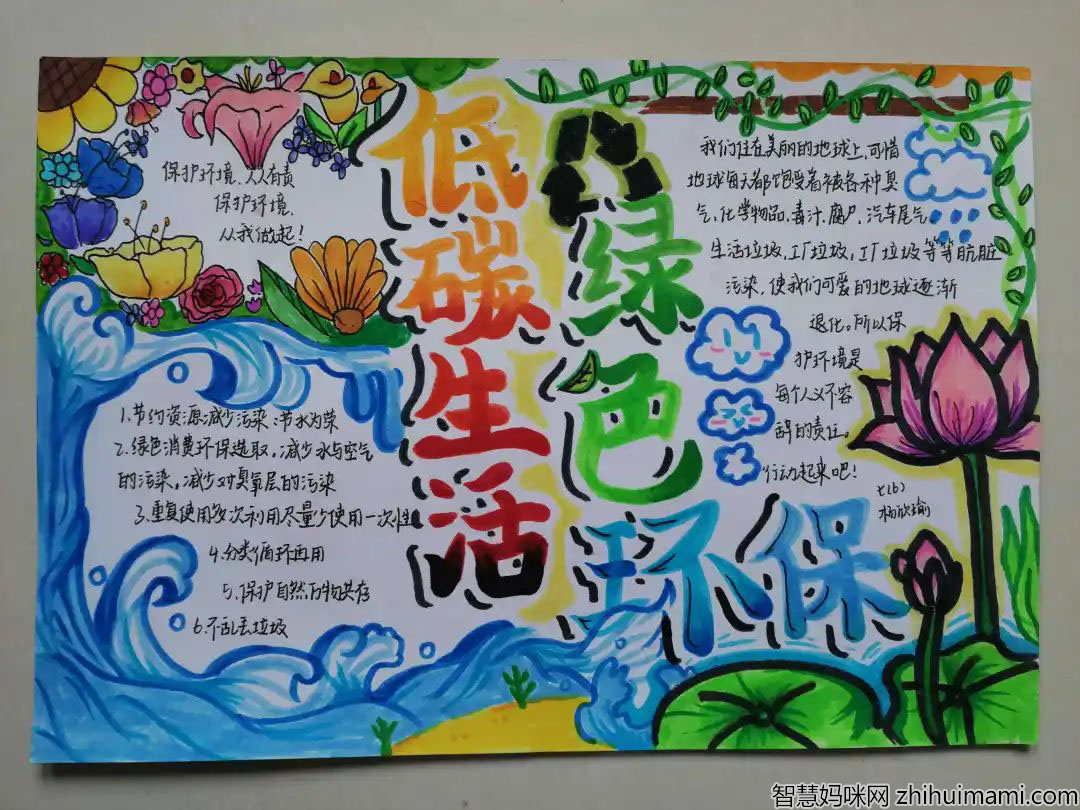 保护环境、人人有责
保护环境、
从我做起！
低碳生活
绿色
环保
我们住在美丽的地球上,可惜
地球每天都饱受着被各种臭
气,化学物品,毒汁,腐尸,汽车尾气
生活垃圾,工厂垃圾,工厂垃圾等等肮脏
污染,使我们可爱的地球逐渐
退化。所以保
护环境是
每个人义不容
辞的责任。
行动起来吧!
七(6)
杨欣瑜
1.节约资源减少污染:节水为荣
2.绿色消费环保选取,减少水与空气
的污染,减少对臭氧层的污染
3.重复使用多次利用尽量少使用一次性
4.分类循环再用
5.保护自然万物共存
6.不乱丢垃圾
智慧妈咪网 zhihuimami.com